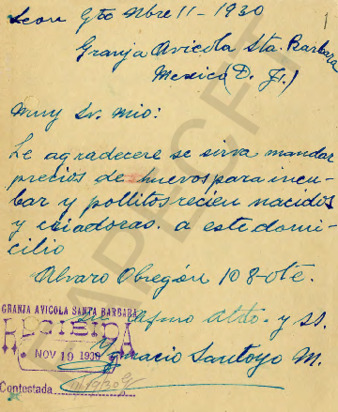 Leon Gto Nbre 11-1930
Granja Avicola Sta. Barbara
Mexico (D. F.)
Muy Sr. mio:
Le agradecere se sirva mandar
precios de huevos para incu-
bar y pollitos recien nacidos
y criadoras. a este domi-
cilio
Alvaro Obregón 108 Ote.
Su Afmo Atto. y SS.
Horacio Santoyo M.
GRANJA AVICOLA SANTA BARBARA
RECIBIDA
NOV 10 1930
Contestada
SPECFT